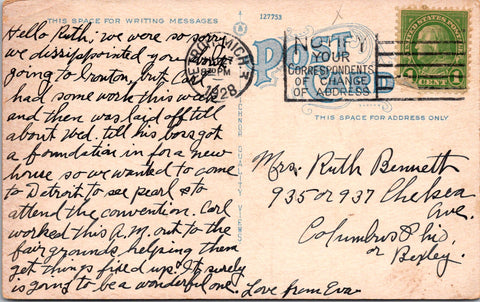 THIS SPACE FOR WRITING MESSAGES
127753
Hello Ruth: we were so sorry
we dissippointed you not
going to Ironton, but Carl
had some work this week
and then was laid off till
about Wed. till his boss got
a foundation in for a new
house so we wanted to come
to Detroit to see pearl & to
attend the convention. Carl
worked this A.M. out to the
fair grounds helping them
get things fixed up. It surely
is going to be a wonderful one.
Love from Eva
DETROIT, MICH.
PM
1928
NOTIFY
YOUR
CORRESPONDENTS
OF CHANGE
OF ADDRESS
POST
CARD
UNITED STATES POSTAGE
1 CENT 1
QUALITY VIEWS
THIS SPACE FOR ADDRESS ONLY
Mrs. Ruth Bennett
935 or 937 Chelsea
Ave.
Columbus Ohio,
or Bexley.